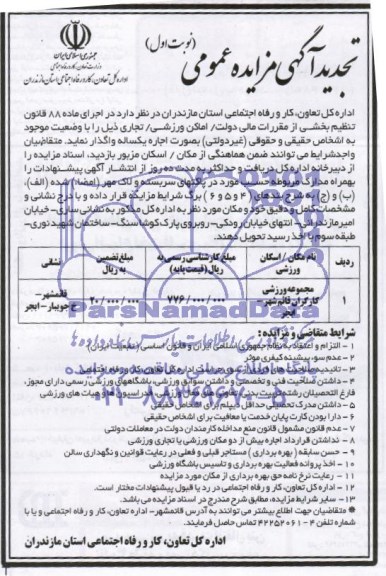 جمهوری اسلامی ایران
وزارت تعاون، کار و رفاه اجتماعی
اداره کل تعاون، کار و رفاه اجتماعی استان مازندران
تجدید آگهی مزایده عمومی (نوبت اول)
اداره کل تعاون، کار و رفاه اجتماعی استان مازندران در نظر دارد در اجرای ماده ۸۸ قانون
تنظیم بخشی از مقررات مالی دولت/ اماکن ورزشی/ تجاری ذیل را با وضعیت موجود
به اشخاص حقیقی و حقوقی (غیردولتی) بصورت اجاره یکساله واگذار نماید. متقاضیان
واجدشرایط می توانند ضمن هماهنگی از مکان / اسکان مزبور بازدید، اسناد مزایده را
از دبیرخانه اداره کل دریافت و حداکثر به مدت ده روز از انتشار آگهی پیشنهادات را
بهمراه مدارک مربوطه حسب مورد در پاکتهای سربسته و لاک مهر (امضاء) شده (الف)،
(ب) و (ج) به شرح بندهای (۴ و ۵ و ۶) برگ شرایط مزایده قرار داده و با درج نشانی و
مشخصات کامل و دقیق خود و مکان مورد نظر به اداره کل مذکور به نشانی ساری- خیابان
امیرمازندرانی- انتهای خیابان رودکی- روبروی پارک کوشاسنگ- ساختمان شهید نوری-
طبقه سوم با اخذ رسید تحویل دهند.
ردیف نام مکان / اسکان ورزشی مبلغ کارشناسی رسمی به ریال (قیمت پایه) مبلغ تضمین به ریال نشانی
۱ مجموعه ورزشی کارگران قائم شهر- ابجر ۷۷۶/۰۰۰/۰۰۰ ۲۰/۰۰۰/۰۰۰ قائمشهر- خ جویبار - ابجر
ParsNamadData
شرایط متقاضی و مزایده :
۱ - التزام و اعتقاد به نظام جمهوری اسلامی ایران و قانون اساسی (تابعیت ایران)
۲ - عدم سوء پیشینه کیفری موثر
۵- داشتن مدرک تحصیلی حداقل دیپلم برای اشخاص حقیقی
۶- دارا بودن کارت پایان خدمت یا معافیت برای اشخاص حقیقی
۷- عدم قانون مشمول قانون منع مداخله کارمندان دولت در معاملات دولتی
۸- نداشتن قرارداد اجاره بیش از دو مکان ورزشی یا تجاری ورزشی
۹- حسن سابقه ( بهره برداری ) مستاجر قبلی و فعلی در رعایت قوانین و نگهداری سالن
۱۰- اخذ پروانه فعالیت بهره برداری و تاسیس باشگاه ورزشی
۱۱- رعایت نرخ نامه حق بهره برداری از مکان مورد مزایده
۱۲- اداره کل تعاون، کار و رفاه اجتماعی در رد یا قبول پیشنهادات مختار است.
۱۳- سایر شرایط مزایده، مطابق شرح مندرج در اسناد مزایده می باشد.
متقاضیان جهت اطلاع بیشتر می توانند به آدرس قائمشهر- اداره تعاون، کار و رفاه اجتماعی و یا با
شماره تلفن ۴-۴۲۲۵۲۰۶۱ تماس حاصل فرمایند.
اداره کل تعاون، کار و رفاه اجتماعی استان مازندران